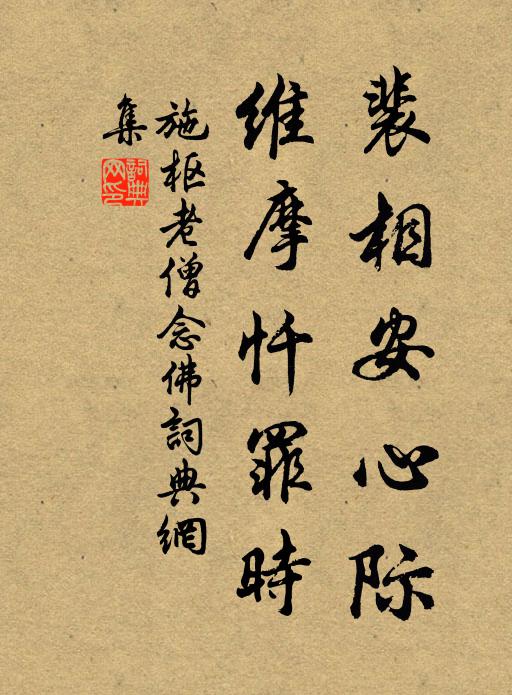 裴相安心际
维摩忏罪時
施枢老僧念佛詞典網
集
詞典网印